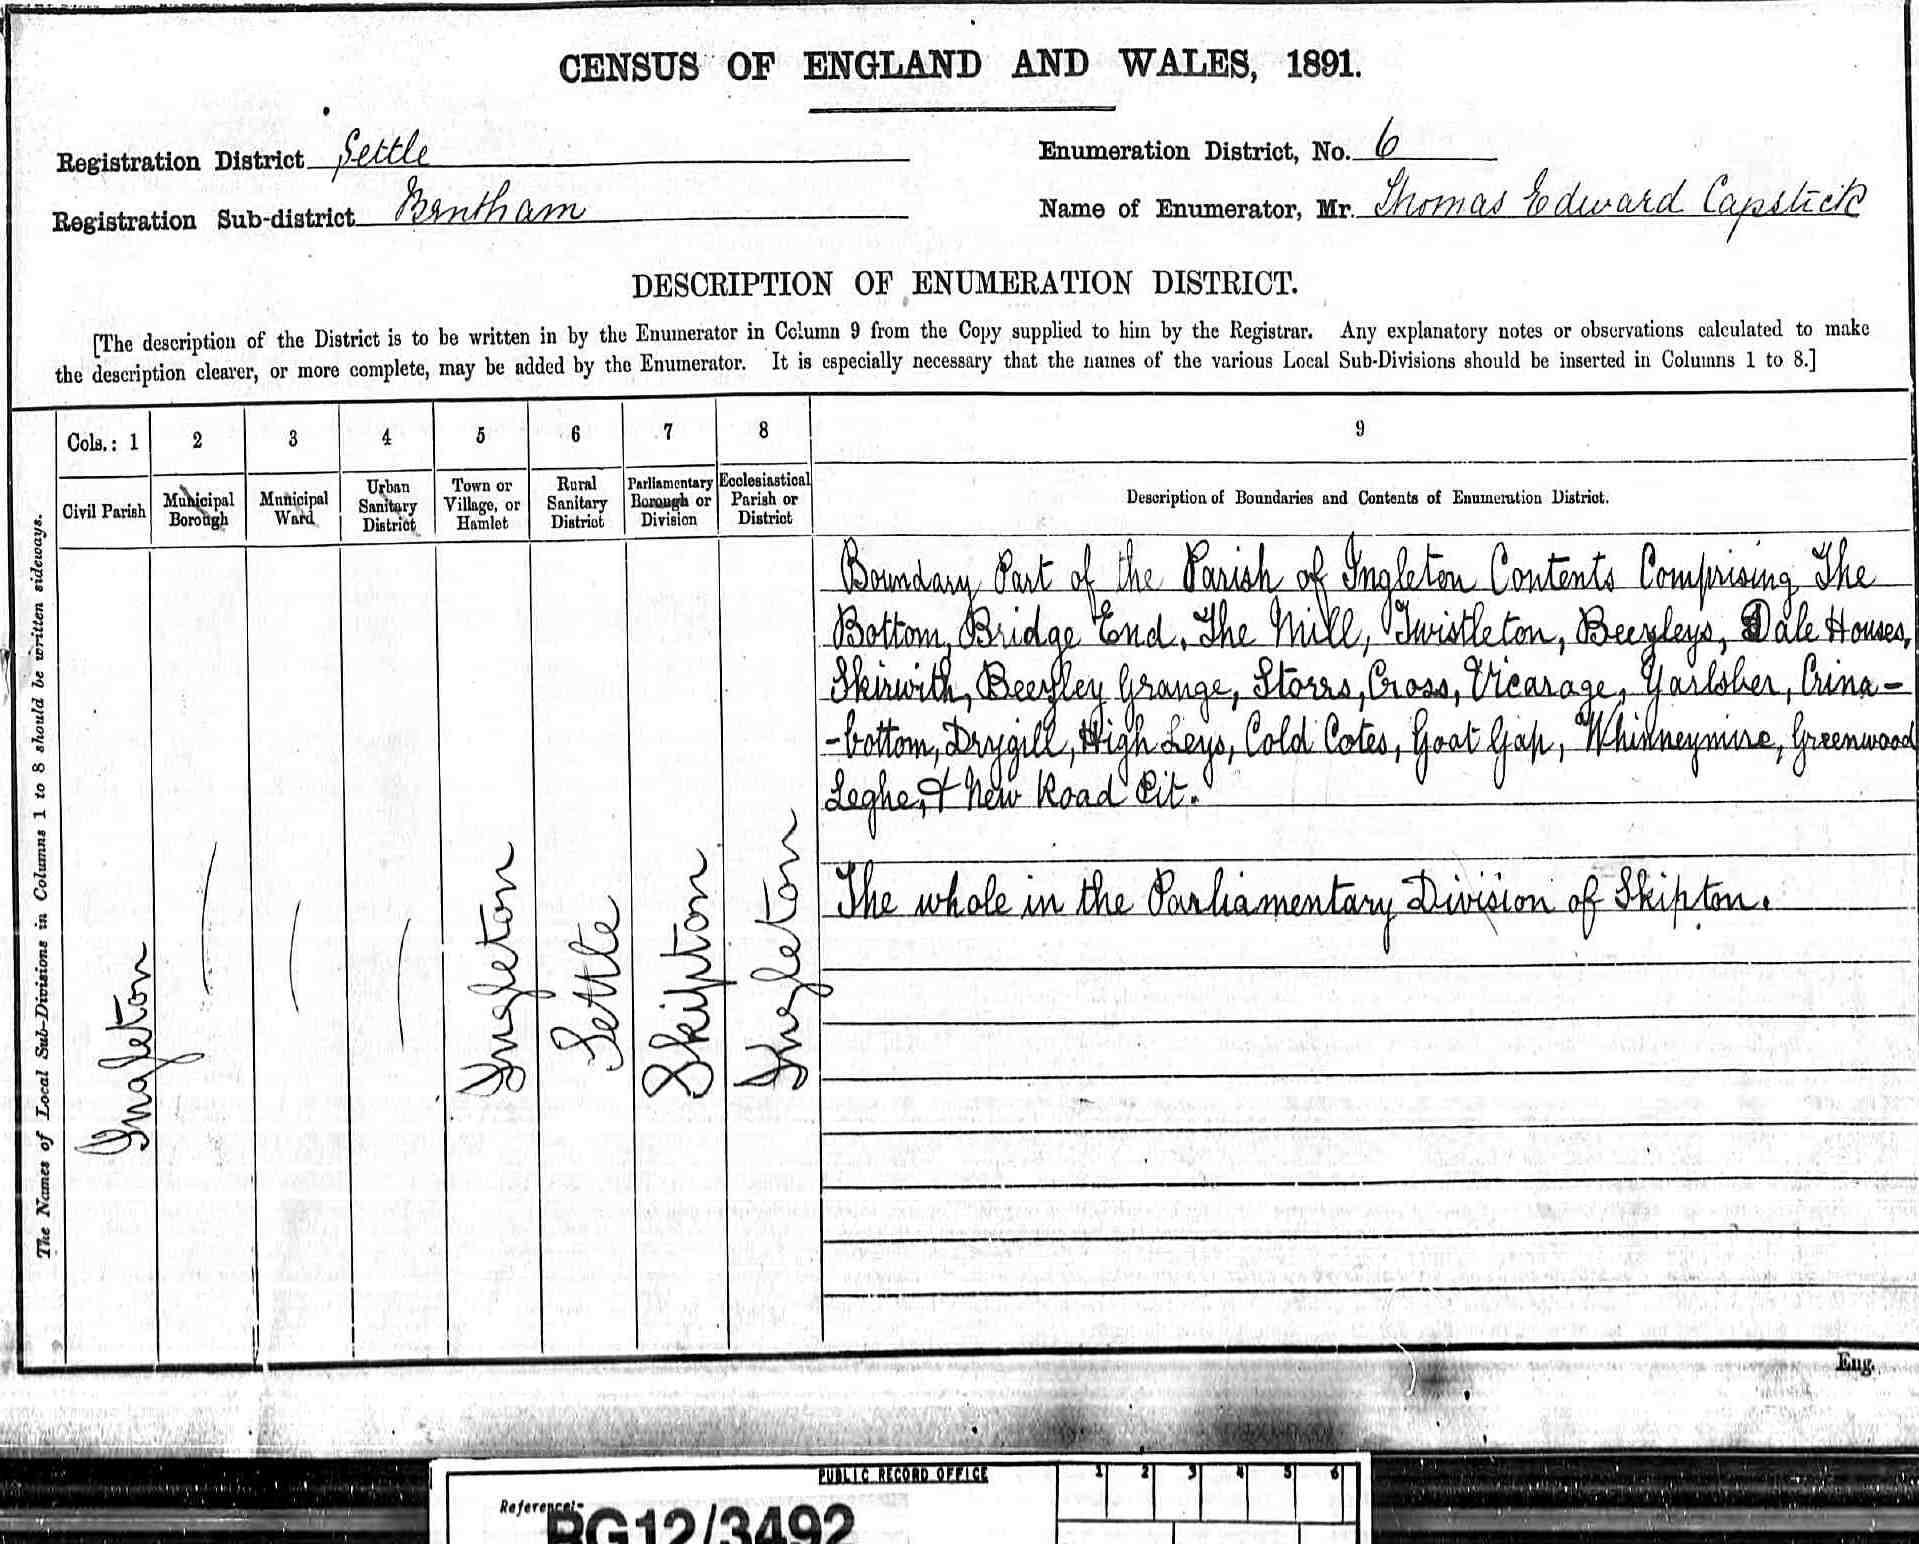 CENSUS OF ENGLAND AND WALES, 1891.
Registration District Settle
Enumeration District, No. 6
Registration Sub-district Bentham
Name of Enumerator, Mr. Thomas Edward Capstick
DESCRIPTION OF ENUMERATION DISTRICT.
[The description of the District is to be written in by the Enumerator in Column 9 from the Copy supplied to him by the Registrar. Any explanatory notes or observations calculated to make
the description clearer, or more complete, may be added by the Enumerator. It is especially necessary that the names of the various Local Sub-Divisions should be inserted in Columns 1 to 8.]
Cols.: 1 2 3 4 5 6 7 8 9
Civil Parish
Municipal
Borough
Municipal
Ward
Urban
Sanitary
District
Town or
Village, or
Hamlet
Rural
Sanitary
District
Parliamentary
Borough or
Division
Ecclesiastical
Parish or
District
Description of Boundaries and Contents of Enumeration District.
The Names of Local Sub-Divisions in Columns 1 to 8 should be written sideways.
Ingleton
Ingleton
Settle
Skipton
Ingleton
Boundary Part of the Parish of Ingleton Contents Comprising The
Bottom, Bridge End, The Mill, Twistleton, Beezleys, Dale Houses,
Skirwith, Beezley Grange, Storrs, Cross, Vicarage, Yarlsber, Crina-
-bottom, Drygill, High Leys, Cold Cotes, Goat Gap, Whinneymire, Greenwood
Leghe, & New Road Pit.
The whole in the Parliamentary Division of Skipton.
Eng.
PUBLIC RECORD OFFICE
1 2 3 4 5 6
Reference:-
RG12/3492